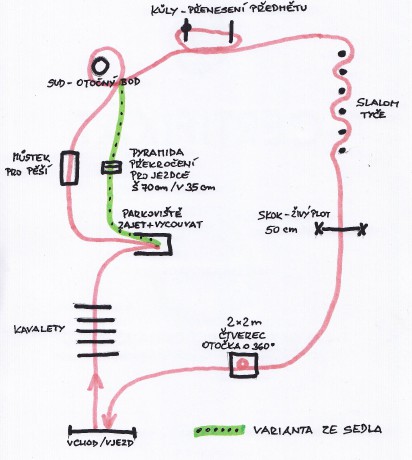 KŮLY - PŘENESENÍ PŘEDMĚTU
SUD - OTOČNÝ BOD
SLALOM
TYČE
MŮSTEK
PRO PĚŠÍ
PYRAMIDA
PŘEKROČENÍ
PRO JEZDCE
Š 70 cm / V 35 cm
PARKOVIŠTĚ
ZAJET + VYCOUVAT
SKOK - ŽIVÝ PLOT
50 cm
KAVALETY
2 x 2 m
ČTVEREC
OTOČKA O 360°
VCHOD / VJEZD
VARIANTA ZE SEDLA